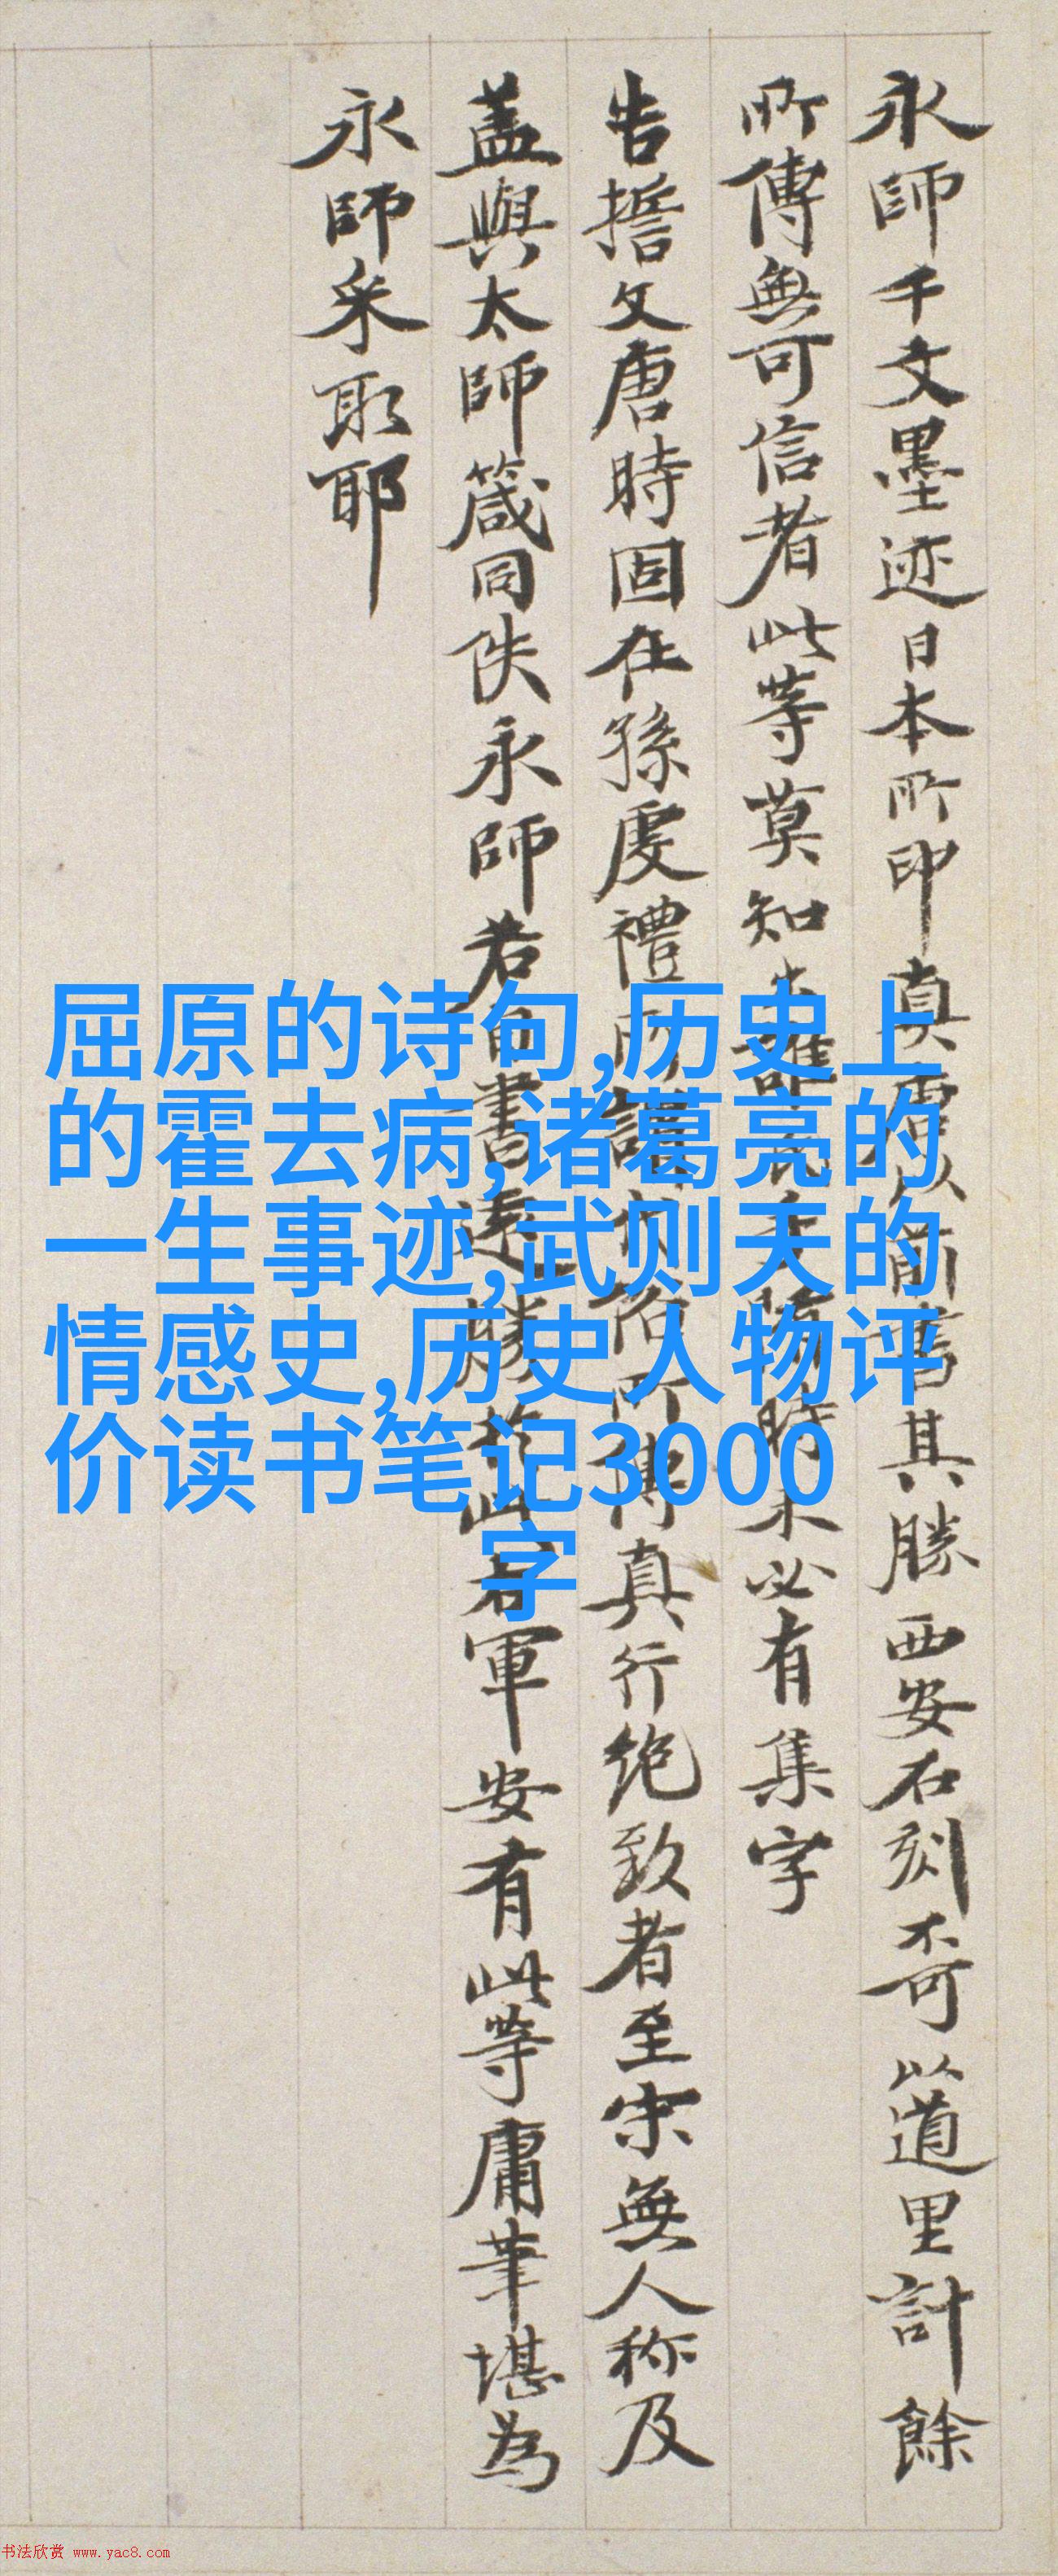 永師千文墨迹日本所印真唐以前書其勝西安石刻不可以道里計餘
所傳無可信者此等莫知出誰氏手隋時未必有集字
告誓文唐時固在孫虔禮所謂代俗所傳真行絶致者至宋無人称及
盖與太師箴同佚永師若自書遠勝於此右軍安有此等庸筆堪為
永師采取耶
屈原的诗句,历史上
的霍去病,诸葛亮的
一生事迹,武则天的
情感史,历史人物评
价读书笔记3000
字
书法欣赏 www.yac8.com